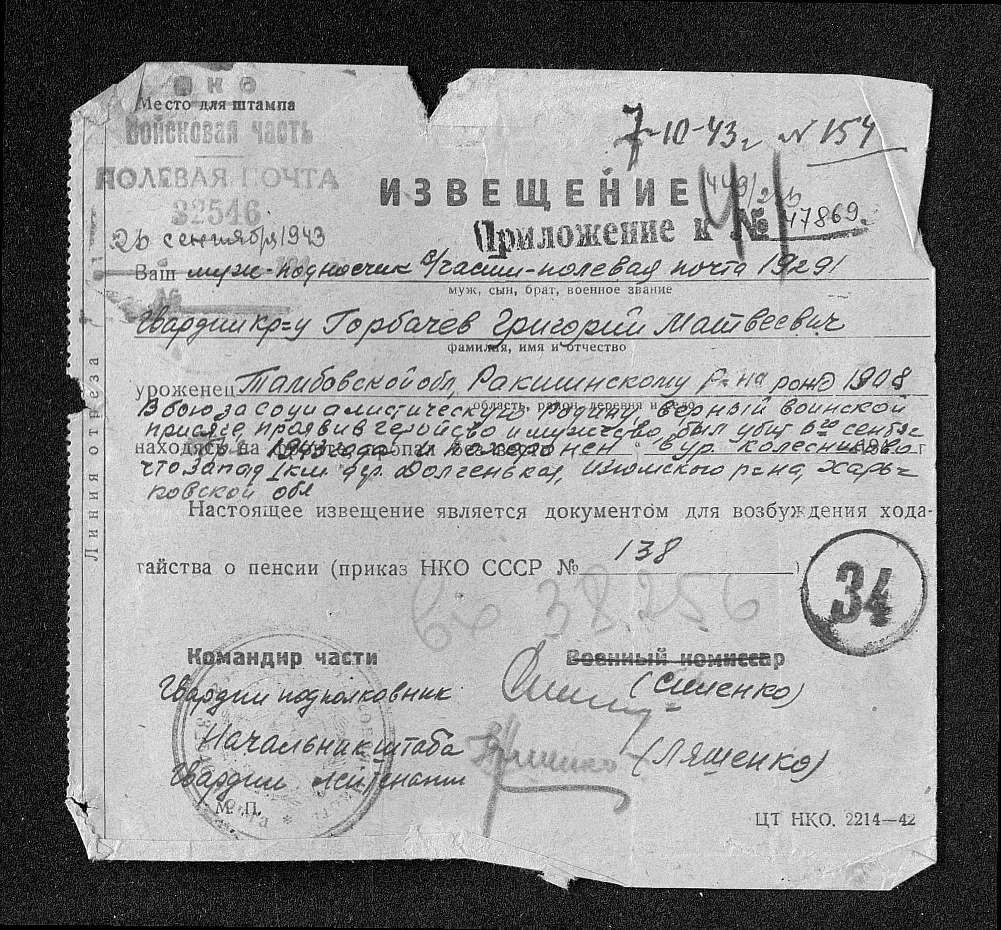 НКО
Место для штампа
Войсковая часть
ПОЛЕВАЯ ПОЧТА
32546
26 сентября 1943
7-10-43г N 154
ИЗВЕЩЕНИЕ
Приложение к № 17869
Ваш муж-подносчик в/части-полевая почта 19291
муж, сын, брат, военное звание
Гвардии кр=ц Горбачев Григорий Матвеевич
фамилия, имя и отчество
уроженец Тамбовской обл, Ракшинскому р-на рожд 1908
область, район, деревня и село
В бою за социалистическую родину, верный воинской
присяге, проявив геройство и мужество, был убит 6го сентяб
находясь на 1943 года и похоронен вур. Колесниково
что запад 1км д. Долгенькая, Изюмского р-на, Харь-
ковской обл
Настоящее извещение является документом для возбуждения хода-
тайства о пенсии (приказ НКО СССР № 138)
вх 38256
34
Командир части Военный комиссар
Гвардии подполковник (Сименко)
Начальник штаба (Ляшенко)
Гвардии лейтенант
М. П.
ЦТ НКО. 2214—42
Линия отреза